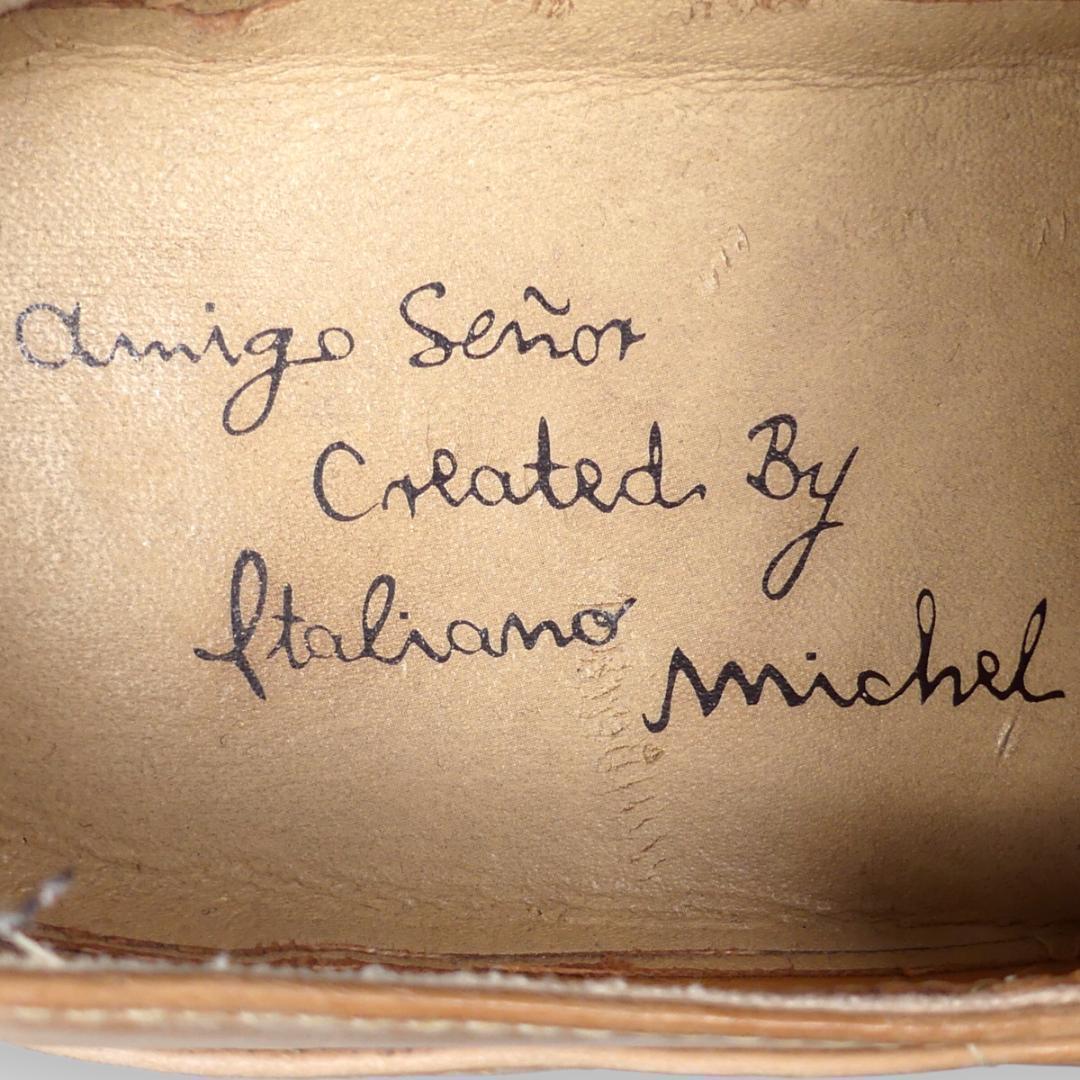 Amigo Señor
Created By
Italiano Michel